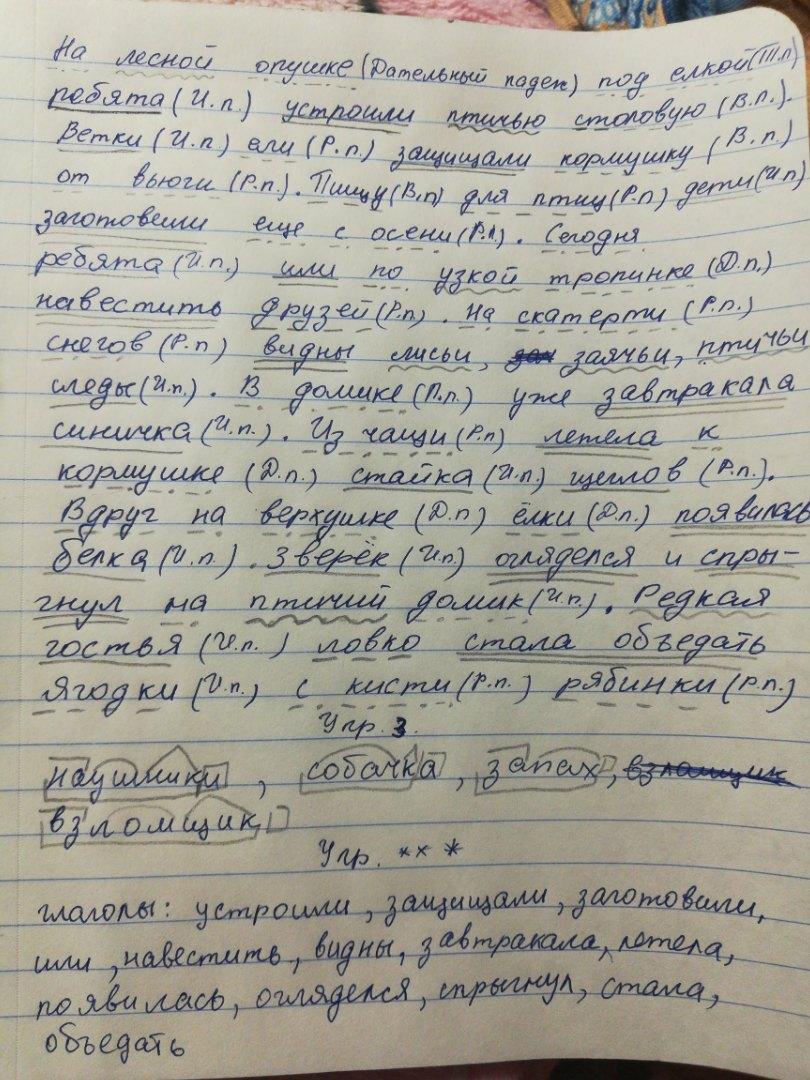 На лесной опушке (Дательный падеж) под елкой (Т.п)
ребята (И.п.) устроили птичью столовую (В.п.).
Ветки (И.п) ели (Р.п.) защищали кормушку (В.п)
от вьюги (Р.п.). Пищу (В.п) для птиц (Р.п) дети (И.п)
заготовили еще с осени (Р.п). Сегодня
ребята (И.п.) шли по узкой тропинке (Д.п.)
навестить друзей (Р.п). На скатерти (Р.п.)
снегов (Р.п) видны лисьи, заячьи, птичьи
следы (И.п.). В домике (П.п.) уже завтракала
синичка (И.п.). Из чащи (Р.п) летела к
кормушке (Д.п.) стайка (И.п.) щеглов (Р.п.).
Вдруг на верхушке (Д.п) ёлки (Д.п.) появилась
белка (И.п.). Зверёк (И.п) огляделся и спры-
гнул на птичий домик (И.п.). Редкая
гостья (И.п.) ловко стала объедать
ягодки (И.п.) с кисти (Р.п.) рябинки (Р.п.)
Упр. 3.
наушники, собачка, запах, взломщик
взломщик
Упр. ** *
глаголы: устроили, защищали, заготовили,
шли, навестить, видны, завтракала, летела,
появилась, огляделся, спрыгнул, стала,
объедать